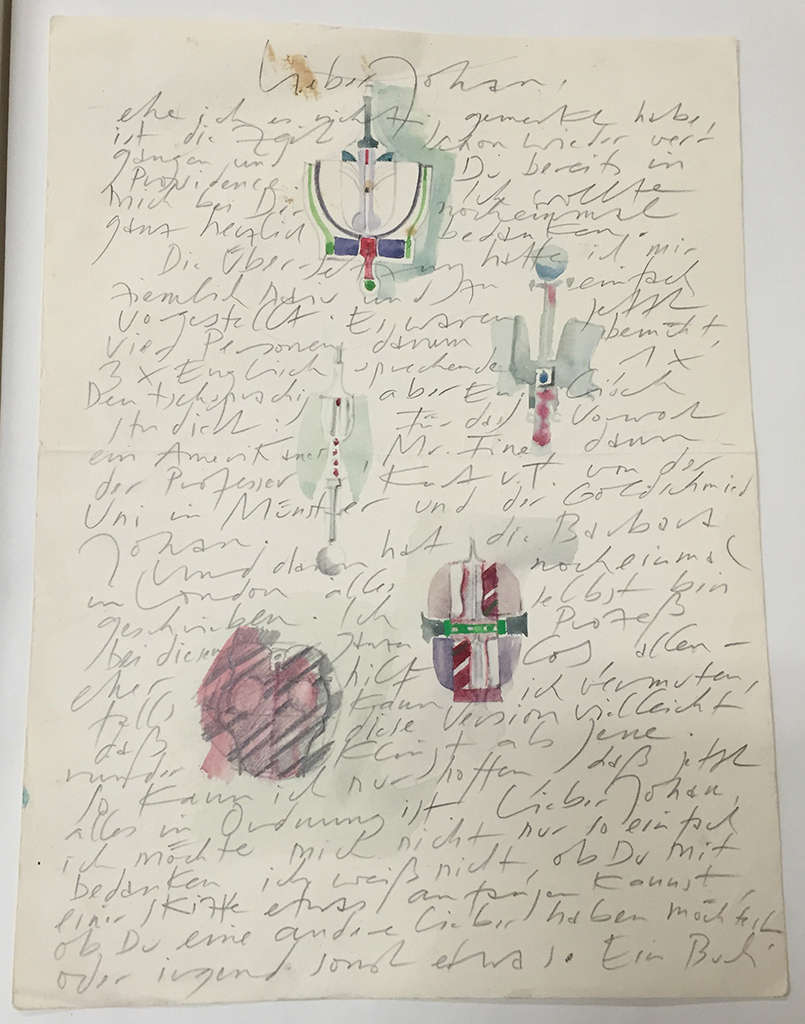 Lieber Johan,
ehe ich es nicht gemerkt habe,
ist die Zeit schon wieder ver-
gangen und Du bereits in
Providence. Ich wollte
mich bei Dir nocheinmal
ganz herzlich bedanken.
Die Übersetzung hatte ich mir
ziemlich naiv und zu einfach
vorgestellt. Es waren jetzt
vier Personen darum bemüht,
3 x Englisch sprechende 1 x
Deutschsprachig aber Englisch
studiert: Für das Vorwort
ein Amerikaner, Mr. Fine, dann
der Professor Kurt v.T. von der
Uni in Münster und der Goldschmied
Johan.
Und dann hat die Barbara
in London alles nocheinmal
geschrieben. Ich selbst bin
bei diesem Prozeß
eher hilflos, allen-
falls kann ich vermuten,
daß diese Version vielleicht
runder klingt als jene.
So kann ich nur hoffen, daß jetzt
alles in Ordnung ist. Lieber Johan,
ich möchte mich nicht nur so einfach
bedanken, ich weiß nicht, ob Du mit
einer Skizze etwas anfangen kannst,
ob Du eine andere lieber haben möchtest
oder irgend sonst etwas. Ein Buch